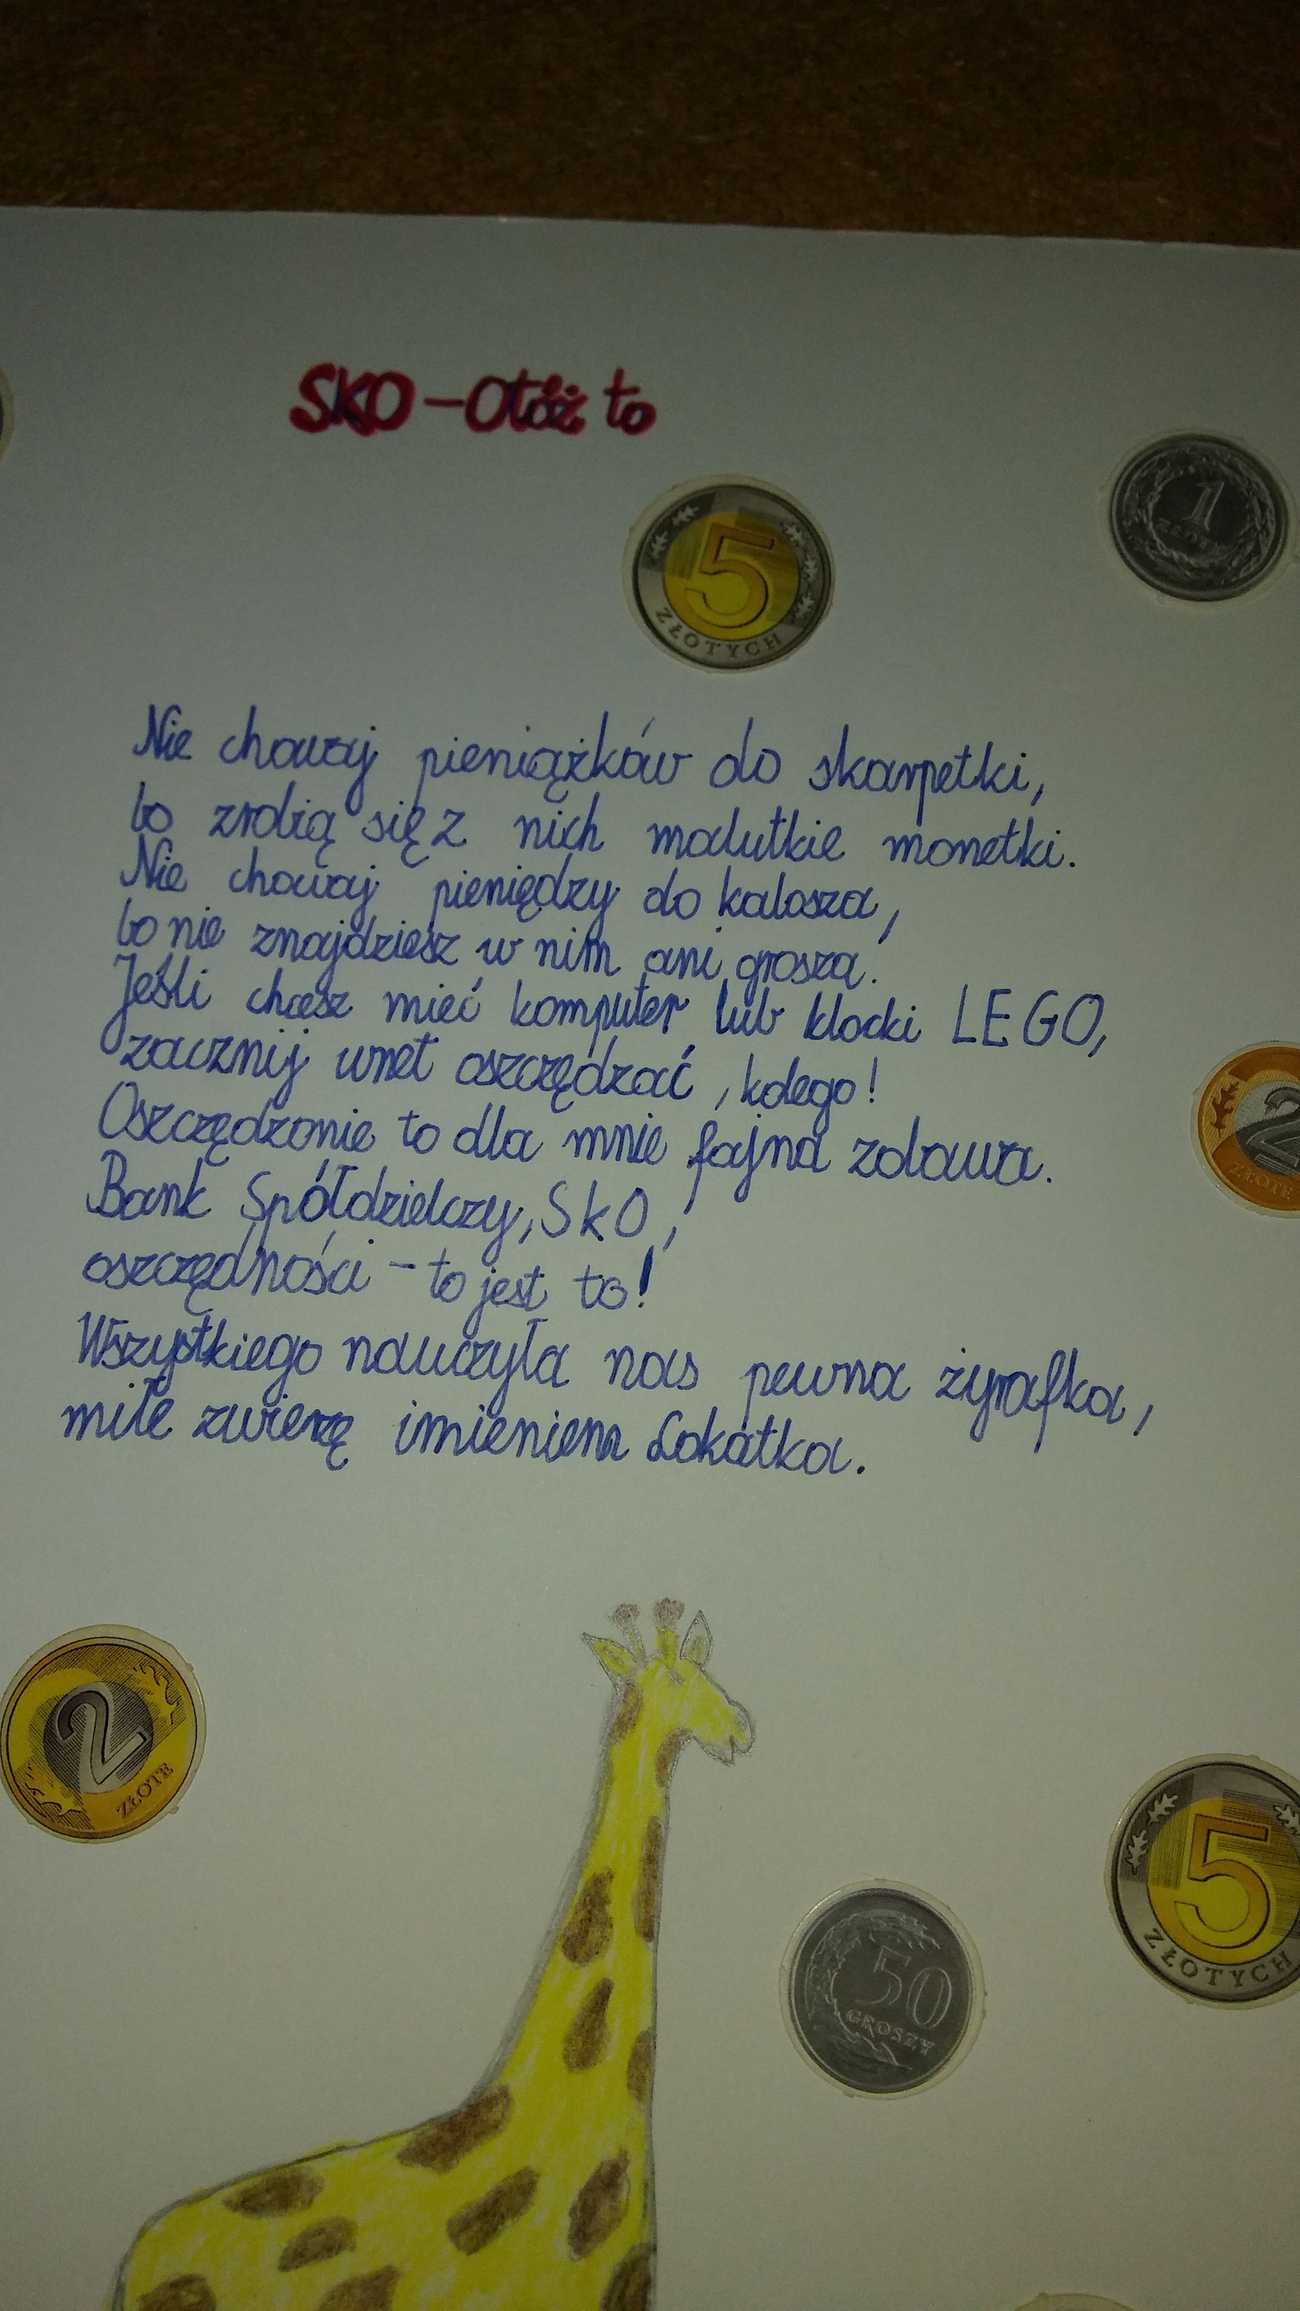 SKO - Otóż to
5
ZŁOTYCH
1
ZŁOTY
Nie chowaj pieniążków do skarpetki,
bo zrobią się z nich malutkie monetki.
Nie chowaj pieniędzy do kalosza,
bo nie znajdziesz w nim ani grosza.
Jeśli chcesz mieć komputer lub klocki LEGO,
zacznij wnet oszczędzać, kolego!
2
ZŁOTE
Oszczędzanie to dla mnie fajna zabawa.
Bank Spółdzielczy, SKO,
oszczędności - to jest to!
Wszystkiego nauczyła nas pewna żyrafka,
miłe zwierzę imieniem Lokatka.
2
ZŁOTE
5
ZŁOTYCH
50
GROSZY